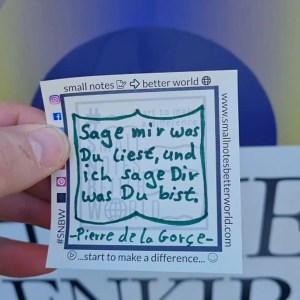 small notes → better world
Sage mir was
Du liest, und
ich sage Dir
was Du bist.
-Pierre de la Gorçe-
...start to make a difference...
#SNBW
www.smallnotesbetterworld.com